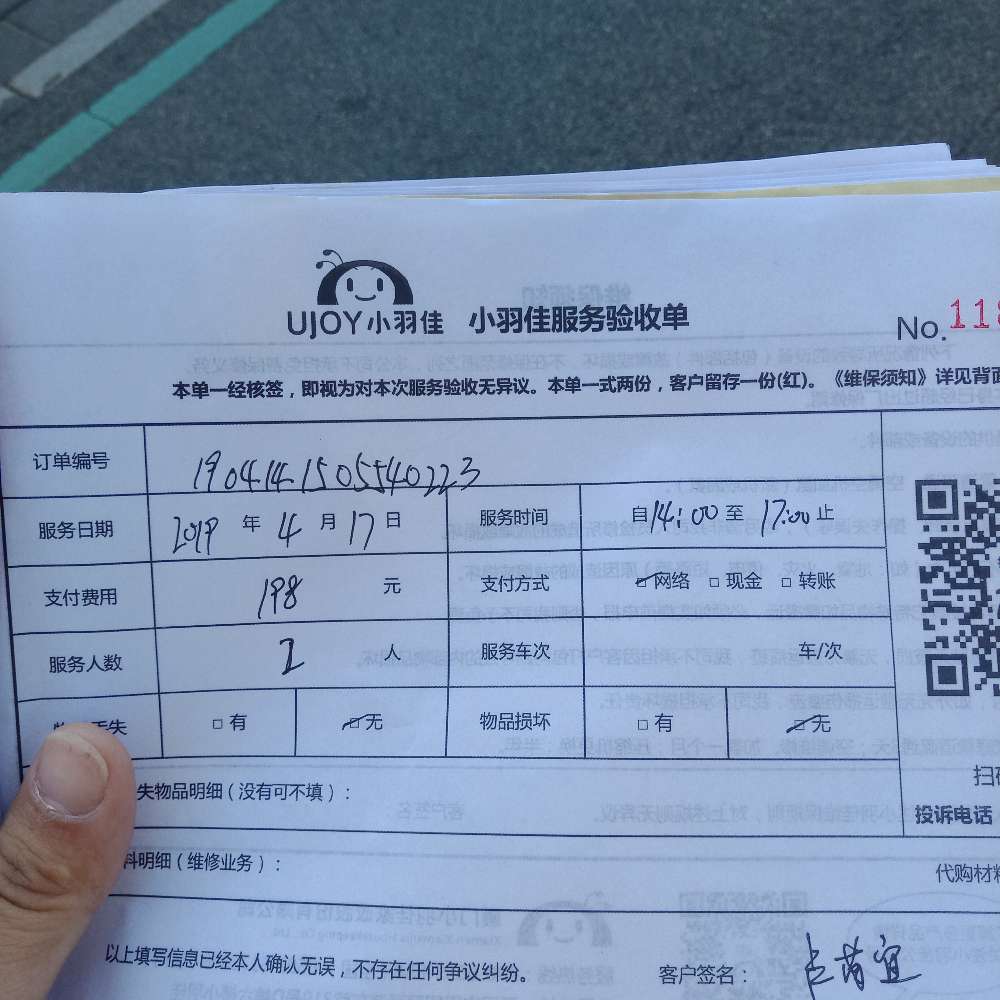 UJOY小羽佳 小羽佳服务验收单
No.118
本单一经核签，即视为对本次服务验收无异议。本单一式两份，客户留存一份(红)。《维保须知》详见背面
订单编号 1904141505540223
服务日期 2019 年 4 月 17 日 服务时间 自14:00至 17:00止
支付费用 198 元 支付方式 □网络 □现金 □转账
服务人数 2 人 服务车次 车/次
丢失 □有 □无 物品损坏 □有 □无
失物品明细（没有可不填）：
扫
投诉电话
料明细（维修业务）：
代购材料
以上填写信息已经本人确认无误，不存在任何争议纠纷。 客户签名：